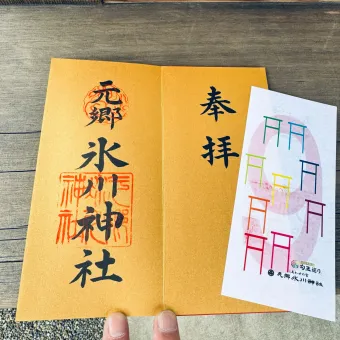 奉拝
元郷
氷川神社
元郷氷川神社